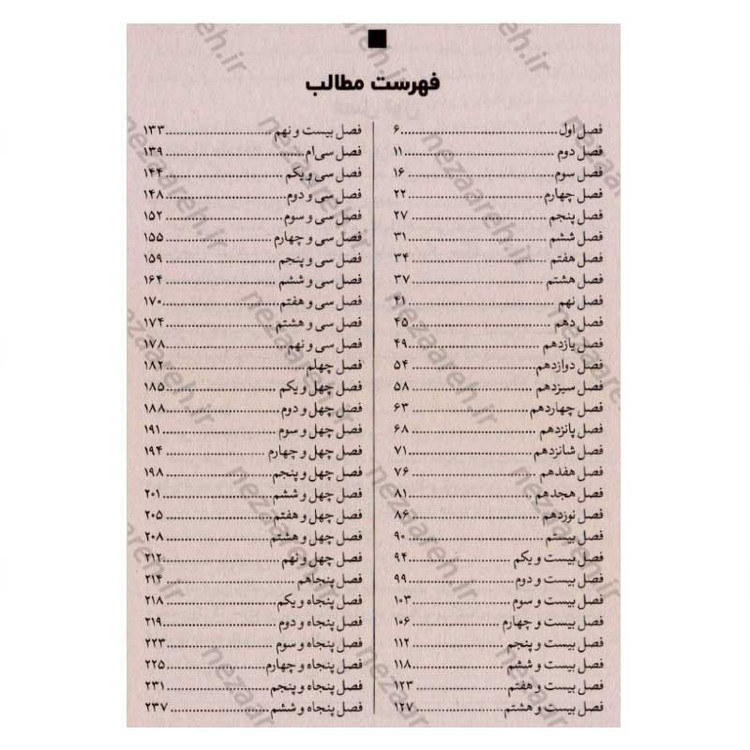 فهرست مطالب
فصل اول ........ ۶
فصل دوم ........ ۱۱
فصل سوم ........ ۱۶
فصل چهارم ........ ۲۲
فصل پنجم ........ ۲۷
فصل ششم ........ ۳۱
فصل هفتم ........ ۳۴
فصل هشتم ........ ۳۷
فصل نهم ........ ۴۱
فصل دهم ........ ۴۵
فصل یازدهم ........ ۴۹
فصل دوازدهم ........ ۵۴
فصل سیزدهم ........ ۵۸
فصل چهاردهم ........ ۶۳
فصل پانزدهم ........ ۶۸
فصل شانزدهم ........ ۷۱
فصل هفدهم ........ ۷۶
فصل هجدهم ........ ۸۱
فصل نوزدهم ........ ۸۶
فصل بیستم ........ ۹۰
فصل بیست و یکم ........ ۹۴
فصل بیست و دوم ........ ۹۹
فصل بیست و سوم ........ ۱۰۳
فصل بیست و چهارم ........ ۱۰۶
فصل بیست و پنجم ........ ۱۱۲
فصل بیست و ششم ........ ۱۱۸
فصل بیست و هفتم ........ ۱۲۳
فصل بیست و هشتم ........ ۱۲۷
فصل بیست و نهم ........ ۱۳۳
فصل سی‌ام ........ ۱۳۹
فصل سی و یکم ........ ۱۴۴
فصل سی و دوم ........ ۱۴۸
فصل سی و سوم ........ ۱۵۲
فصل سی و چهارم ........ ۱۵۵
فصل سی و پنجم ........ ۱۵۹
فصل سی و ششم ........ ۱۶۴
فصل سی و هفتم ........ ۱۷۰
فصل سی و هشتم ........ ۱۷۴
فصل سی و نهم ........ ۱۷۸
فصل چهلم ........ ۱۸۲
فصل چهل و یکم ........ ۱۸۵
فصل چهل و دوم ........ ۱۸۸
فصل چهل و سوم ........ ۱۹۱
فصل چهل و چهارم ........ ۱۹۴
فصل چهل و پنجم ........ ۱۹۸
فصل چهل و ششم ........ ۲۰۱
فصل چهل و هفتم ........ ۲۰۵
فصل چهل و هشتم ........ ۲۰۸
فصل چهل و نهم ........ ۲۱۲
فصل پنجاهم ........ ۲۱۴
فصل پنجاه و یکم ........ ۲۱۸
فصل پنجاه و دوم ........ ۲۱۹
فصل پنجاه و سوم ........ ۲۲۳
فصل پنجاه و چهارم ........ ۲۲۵
فصل پنجاه و پنجم ........ ۲۳۱
فصل پنجاه و ششم ........ ۲۳۷
nezaareh.ir